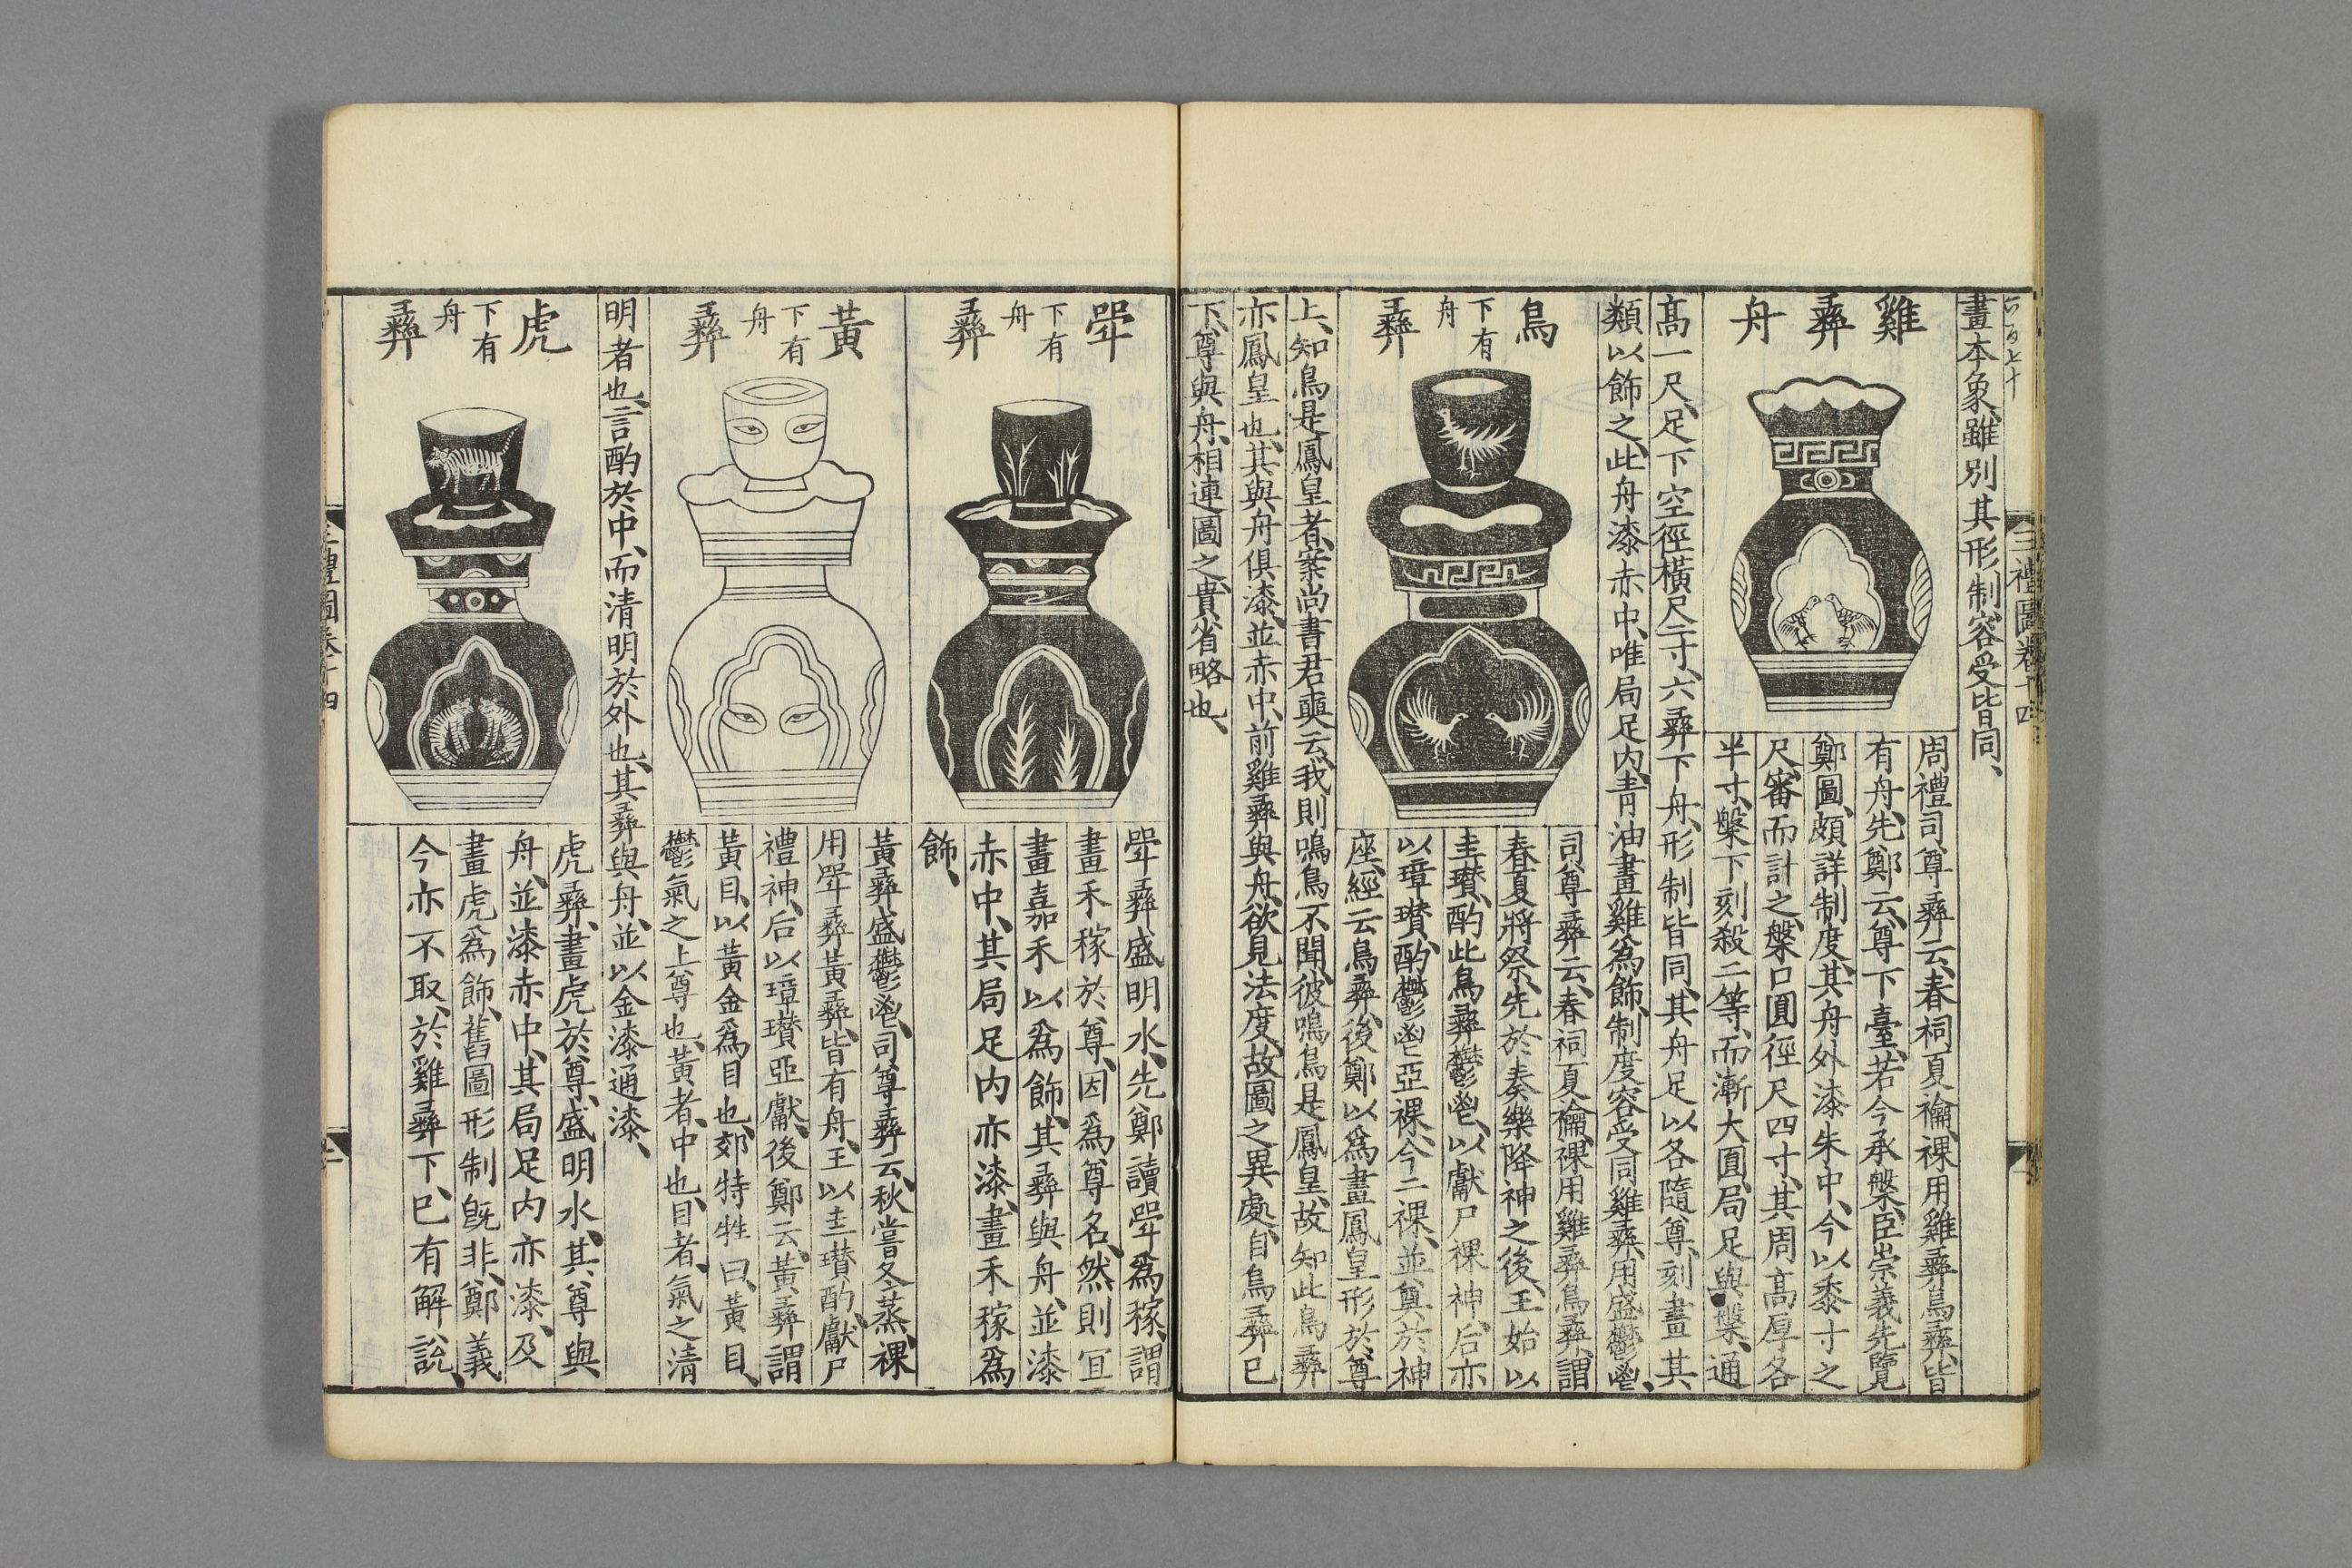 三禮圖卷十四
畫本象雖別其形制容受皆同、
雞彝舟
周禮司尊彝云、春祠夏禴、祼用雞彝鳥彝、皆
有舟、先鄭云、尊下臺、若今承槃、臣崇義先覽
鄭圖、頗詳制度、其舟外漆朱中、今以黍寸之
尺、審而計之、槃口圓徑尺四寸、其周高厚各
半寸、槃下刻殺二等、而漸大圓、局足與槃、通
高一尺、足下空徑橫尺二寸、六彝下舟、形制皆同、其舟足以各隨尊、刻畫其
類以飾之、此舟漆赤中、唯局足內、青油畫雞爲飾、制度容受同雞彝、用盛鬱鬯、
鳥彝
下有
舟
司尊彝云、春祠夏禴、祼用雞彝鳥彝、謂
春夏將祭、先於奏樂降神之後、王始以
圭瓚、酌此鳥彝鬱鬯、以獻尸祼神、后亦
以璋瓚、酌鬱鬯亞祼、今二祼、並奠於神
座、經云鳥彝、後鄭以爲畫鳳皇形於尊
上、知鳥是鳳皇者、案尚書君奭云、我則鳴鳥不聞、彼鳴鳥是鳳皇、故知此鳥彝
亦鳳皇也、其與舟俱漆、並赤中、前雞彝與舟、欲見法度、故圖之異處、自鳥彝已
下、尊與舟、相連圖之、貴省略也、
斝彝
下有
舟
斝彝盛明水、先鄭讀斝爲稼、謂
畫禾稼於尊、因爲尊名、然則宜
畫嘉禾以爲飾、其彝與舟、並漆
赤中、其局足內亦漆、畫禾稼爲
飾、
黃彝
下有
舟
黃彝盛鬱鬯、司尊彝云、秋嘗冬蒸、祼
用斝彝黃彝、皆有舟、王以圭瓚酌、獻尸
禮神、后以璋瓚亞獻、後鄭云、黃彝謂
黃目、以黃金爲目也、郊特牲曰、黃目、
鬱氣之上尊也、黃者、中也、目者、氣之清
明者也、言酌於中、而清明於外也、其彝與舟、並以金漆通漆、
虎彝
下有
舟
虎彝、畫虎於尊、盛明水、其尊與
舟、並漆赤中、其局足內亦漆、及
畫虎爲飾、舊圖形制旣非、鄭義
今亦不取、於雞彝下、已有解說、
三禮圖卷十四